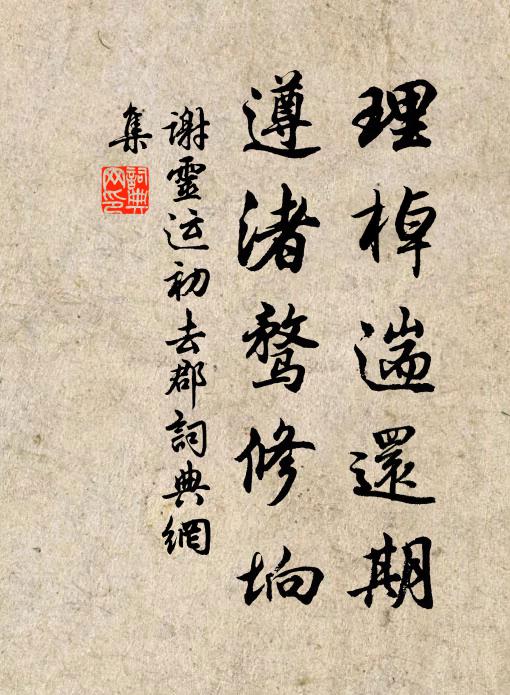 理棹遄還期
遵渚騖修坰
謝靈运初去郡詞典網
集
詞典
网印